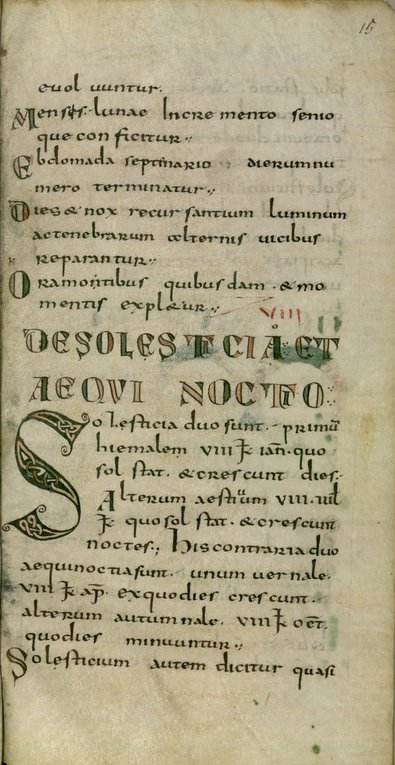 15
euoluuntur.
Menses lunae incremento senio
que conficitur.,
Ebdomada septinario dierum nu
mero terminatur.,
Dies & nox recursantium luminum
ac tenebrarum alternis uicibus
reparantur.,
Ora montibus quibusdam . & mo
mentis explætur.,
VIII
DE SOLESTICIA ET
AEQUINOCTIO
Solesticia duo sunt . primū
hiemalem VIII k̄ ian̄ . quo
sol stat . & crescunt dies .
Alterum aestiuū VIII . iul̄
k̄ quo sol stat . & crescunt
noctes ., His contraria duo
aequinoctia sunt . unum uernale .
VIII k̄ ap̄ . ex quo dies crescunt .
alterum autumnale . VIII k̄ oct̄ .
quo dies minuuntur.,
Solesticium autem dicitur quasi